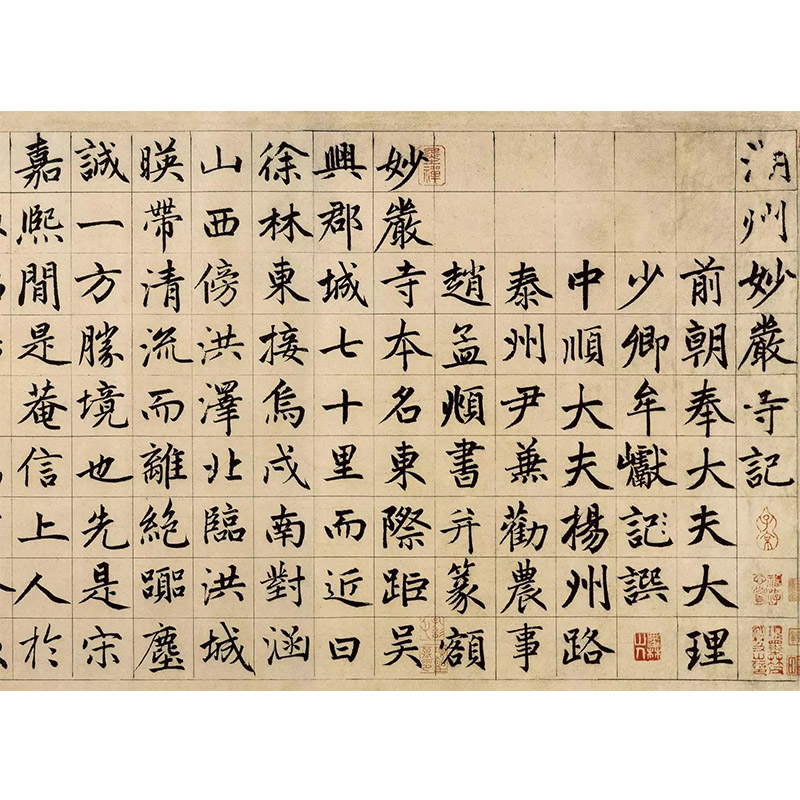 湖州妙嚴寺記
前朝奉大夫大理
少卿牟巘記譔
中順大夫楊州路
泰州尹兼勸農事
趙孟頫書并篆額
妙嚴寺本名東際距吳
興郡城七十里而近曰
徐林東接烏戍南對涵
山西傍洪澤北臨洪城
暎帶清流而離絕躢塵
誠一方勝境也先是宋
嘉熈間是菴信上人於